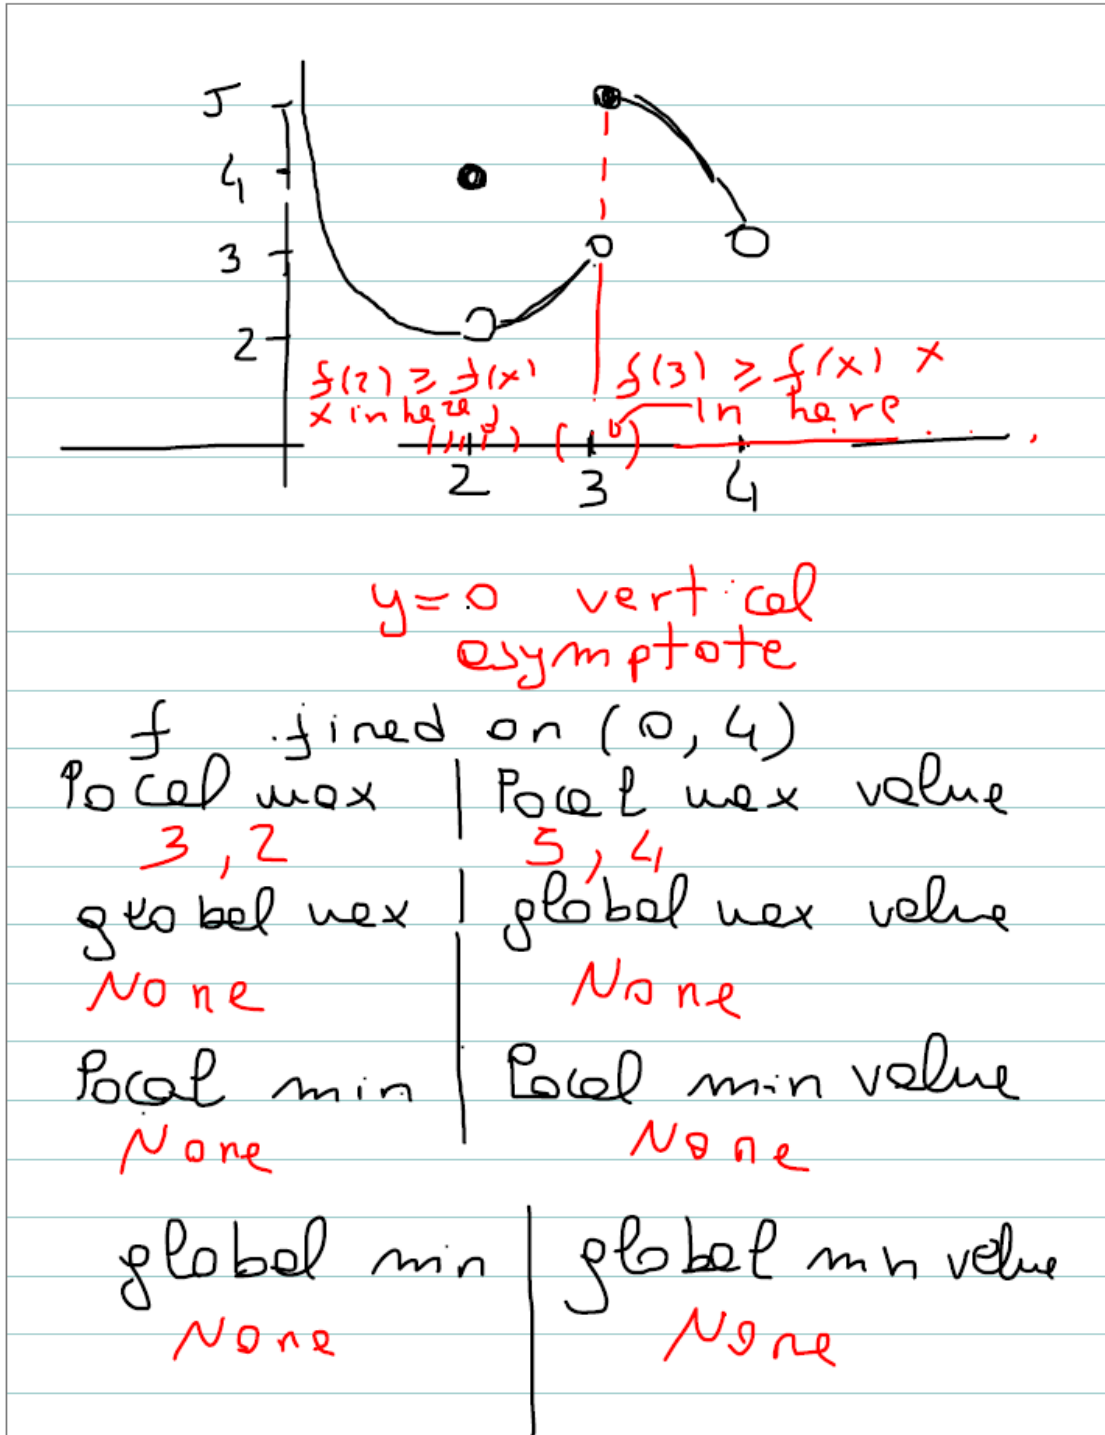 5
4
3
2
f(2) ≥ f(x) f(3) ≥ f(x) x
x in here in here
2 3 4
y=0 vertical
asymptote
f fined on (0, 4)
local max | local max value
3, 2 5, 4
global max | global max value
None None
local min | local min value
None None
global min | global mn value
None None